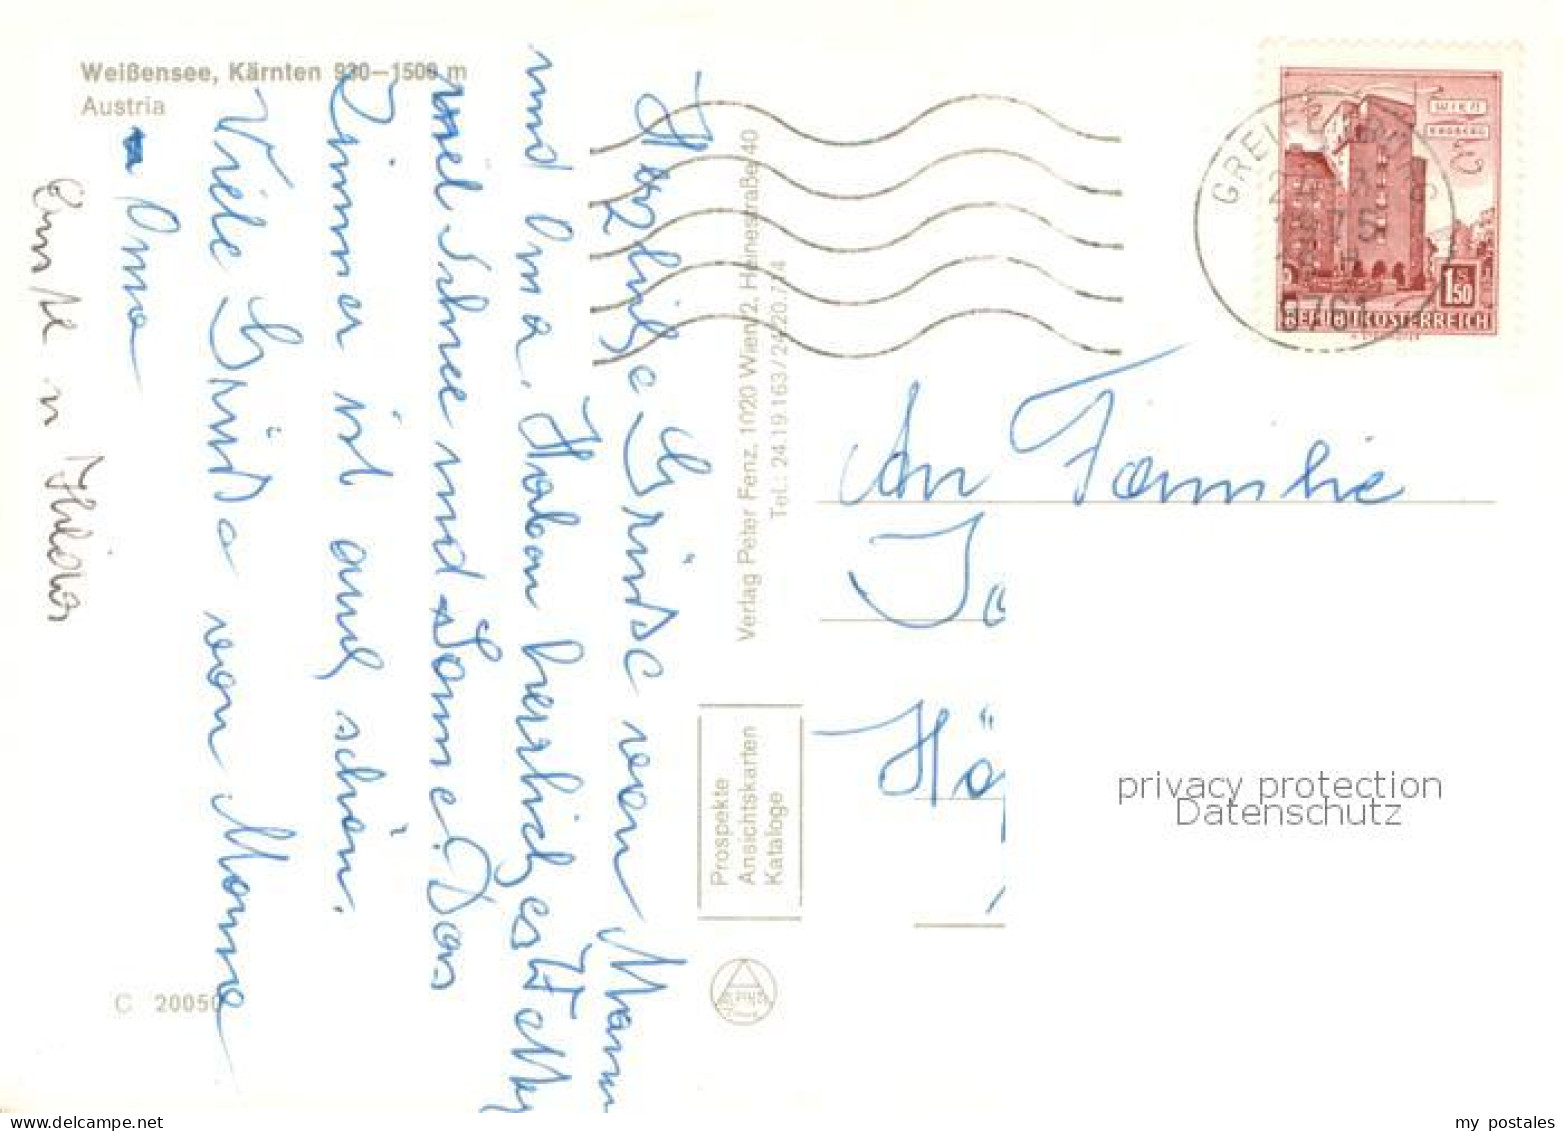 Weißensee, Kärnten 930–1500 m
Austria
Herzliche Grüße von Mama
und Oma. Haben herrliches Wetter
viel Schnee und Sonne. Das
Zimmer ist auch schön.
Viele Grüße von Mama
u Oma
u Hilde
Verlag Peter Fenz, 1020 Wien/2, Heinestraße 40
Tel.: 24 19 163/24 20 
Prospekte
Ansichtskarten
Kataloge
C 20050
WIEN
ERDBERG
1S50
REPUBLIK ÖSTERREICH
1975
9761
An Familie
Jo
Hö
privacy protection
Datenschutz
my postales